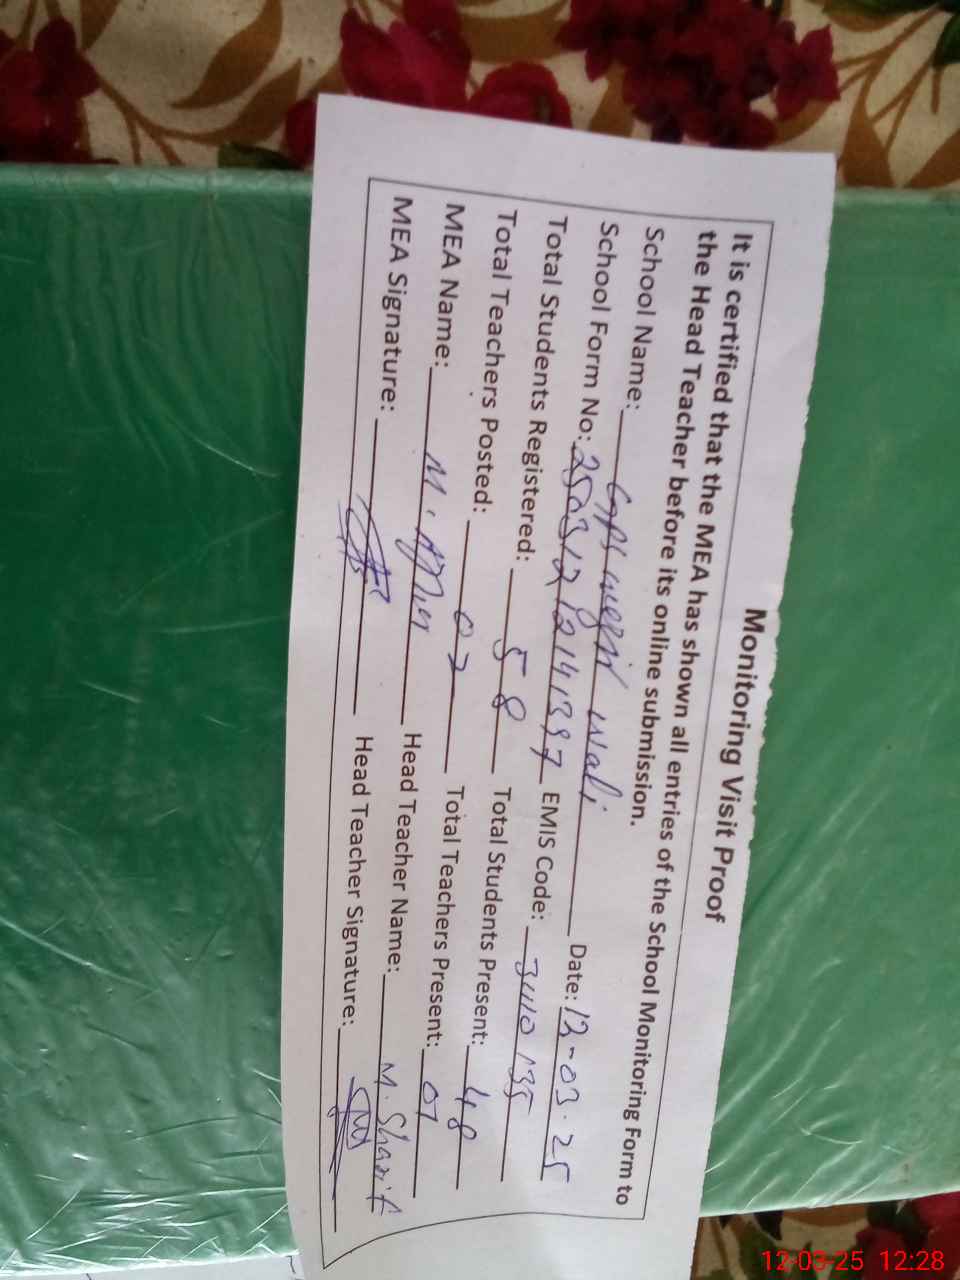 Monitoring Visit Proof
It is certified that the MEA has shown all entries of the School Monitoring Form to
the Head Teacher before its online submission.
School Name: GPS wali Date: 12-03.25
School Form No: EMIS Code:
Total Students Registered: 58 Total Students Present: 48
Total Teachers Posted: 02 Total Teachers Present: 01
MEA Name: M. Head Teacher Name: M. Sharif
MEA Signature: Head Teacher Signature:
12-03-25 12:28